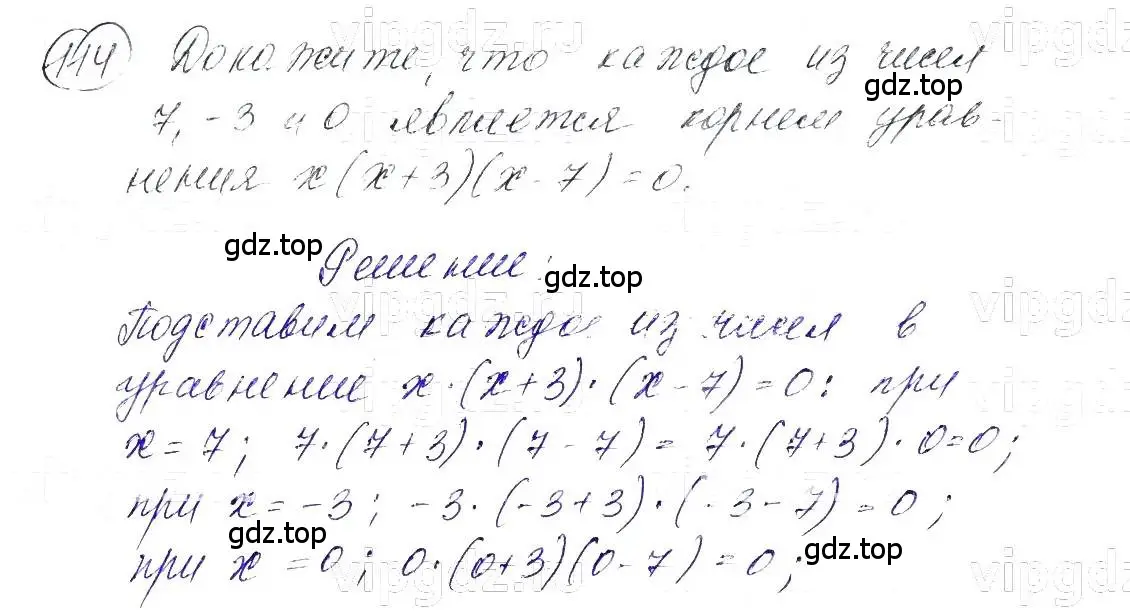 114 Докажите, что каждое из чисел
7, -3 и 0 является корнем урав-
нения x(x+3)(x-7)=0.
Решение:
Подставим каждое из чисел в
уравнение x·(x+3)·(x-7)=0: при
x=7; 7·(7+3)·(7-7)=7·(7+3)·0=0;
при x=-3; -3·(-3+3)·(-3-7)=0;
при x=0; 0·(0+3)(0-7)=0;
vipgdz.ru
vipgdz
gdz.top
gdz.top
gdz.top
vipgdz.ru
vipgdz
gdz.top
gdz.top
vipgdz.ru
vipgdz